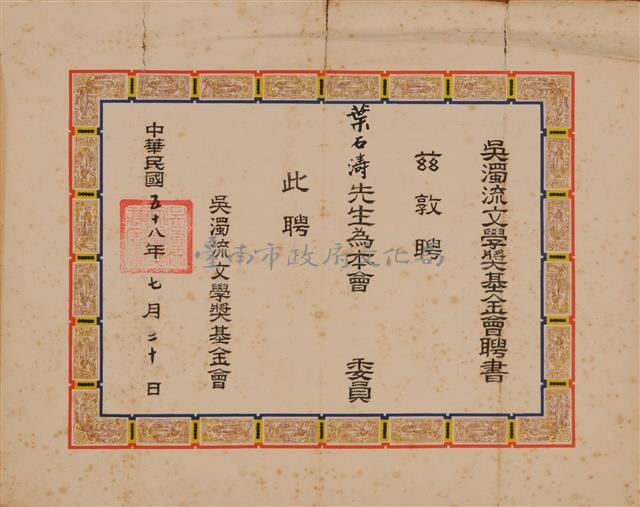 吳濁流文學獎基金會聘書
茲敦聘
葉石濤先生為本會 委員
此聘
吳濁流文學獎基金會
中華民國五十八年七月二十日
臺南市政府文化局